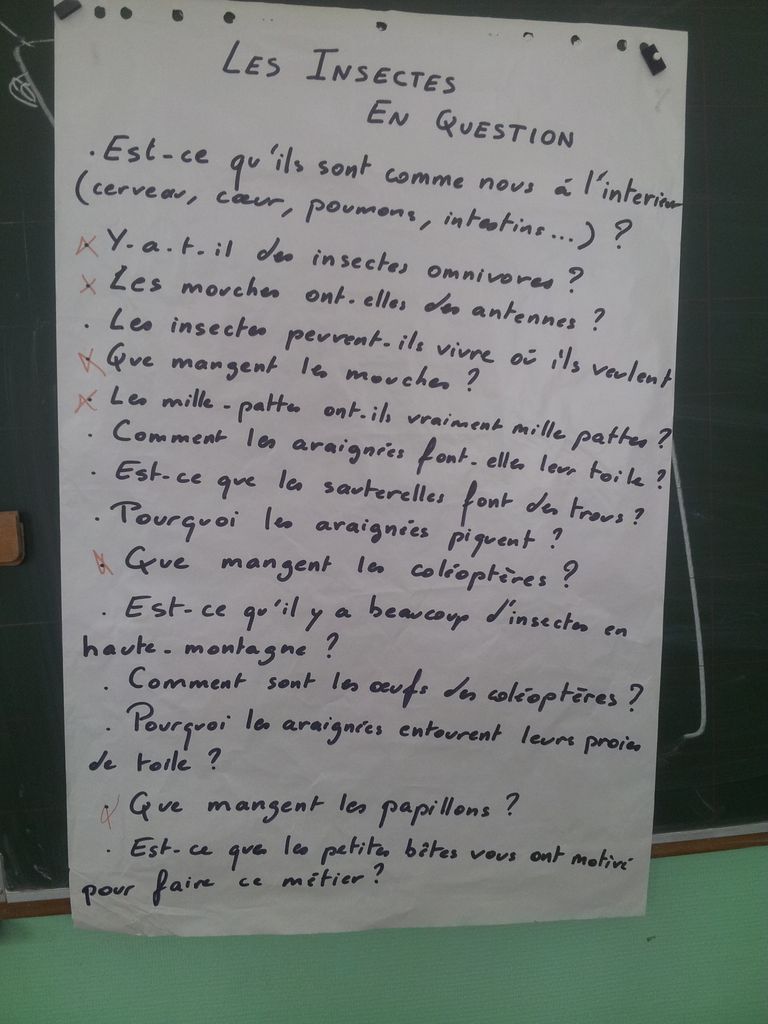 LES INSECTES
EN QUESTION
. Est-ce qu'ils sont comme nous à l'interieur
(cerveau, cœur, poumons, intestins...) ?
. Y-a-t-il des insectes omnivores ?
. Les mouches ont-elles des antennes ?
. Les insectes peuvent-ils vivre où ils veulent
. Que mangent les mouches ?
. Les mille-pattes ont-ils vraiment mille pattes ?
. Comment les araignées font-elles leur toile ?
. Est-ce que les sauterelles font des trous ?
. Pourquoi les araignées piquent ?
. Que mangent les coléoptères ?
. Est-ce qu'il y a beaucoup d'insectes en
haute-montagne ?
. Comment sont les œufs des coléoptères ?
. Pourquoi les araignées entourent leurs proies
de toile ?
. Que mangent les papillons ?
. Est-ce que les petites bêtes vous ont motivé
pour faire ce métier ?